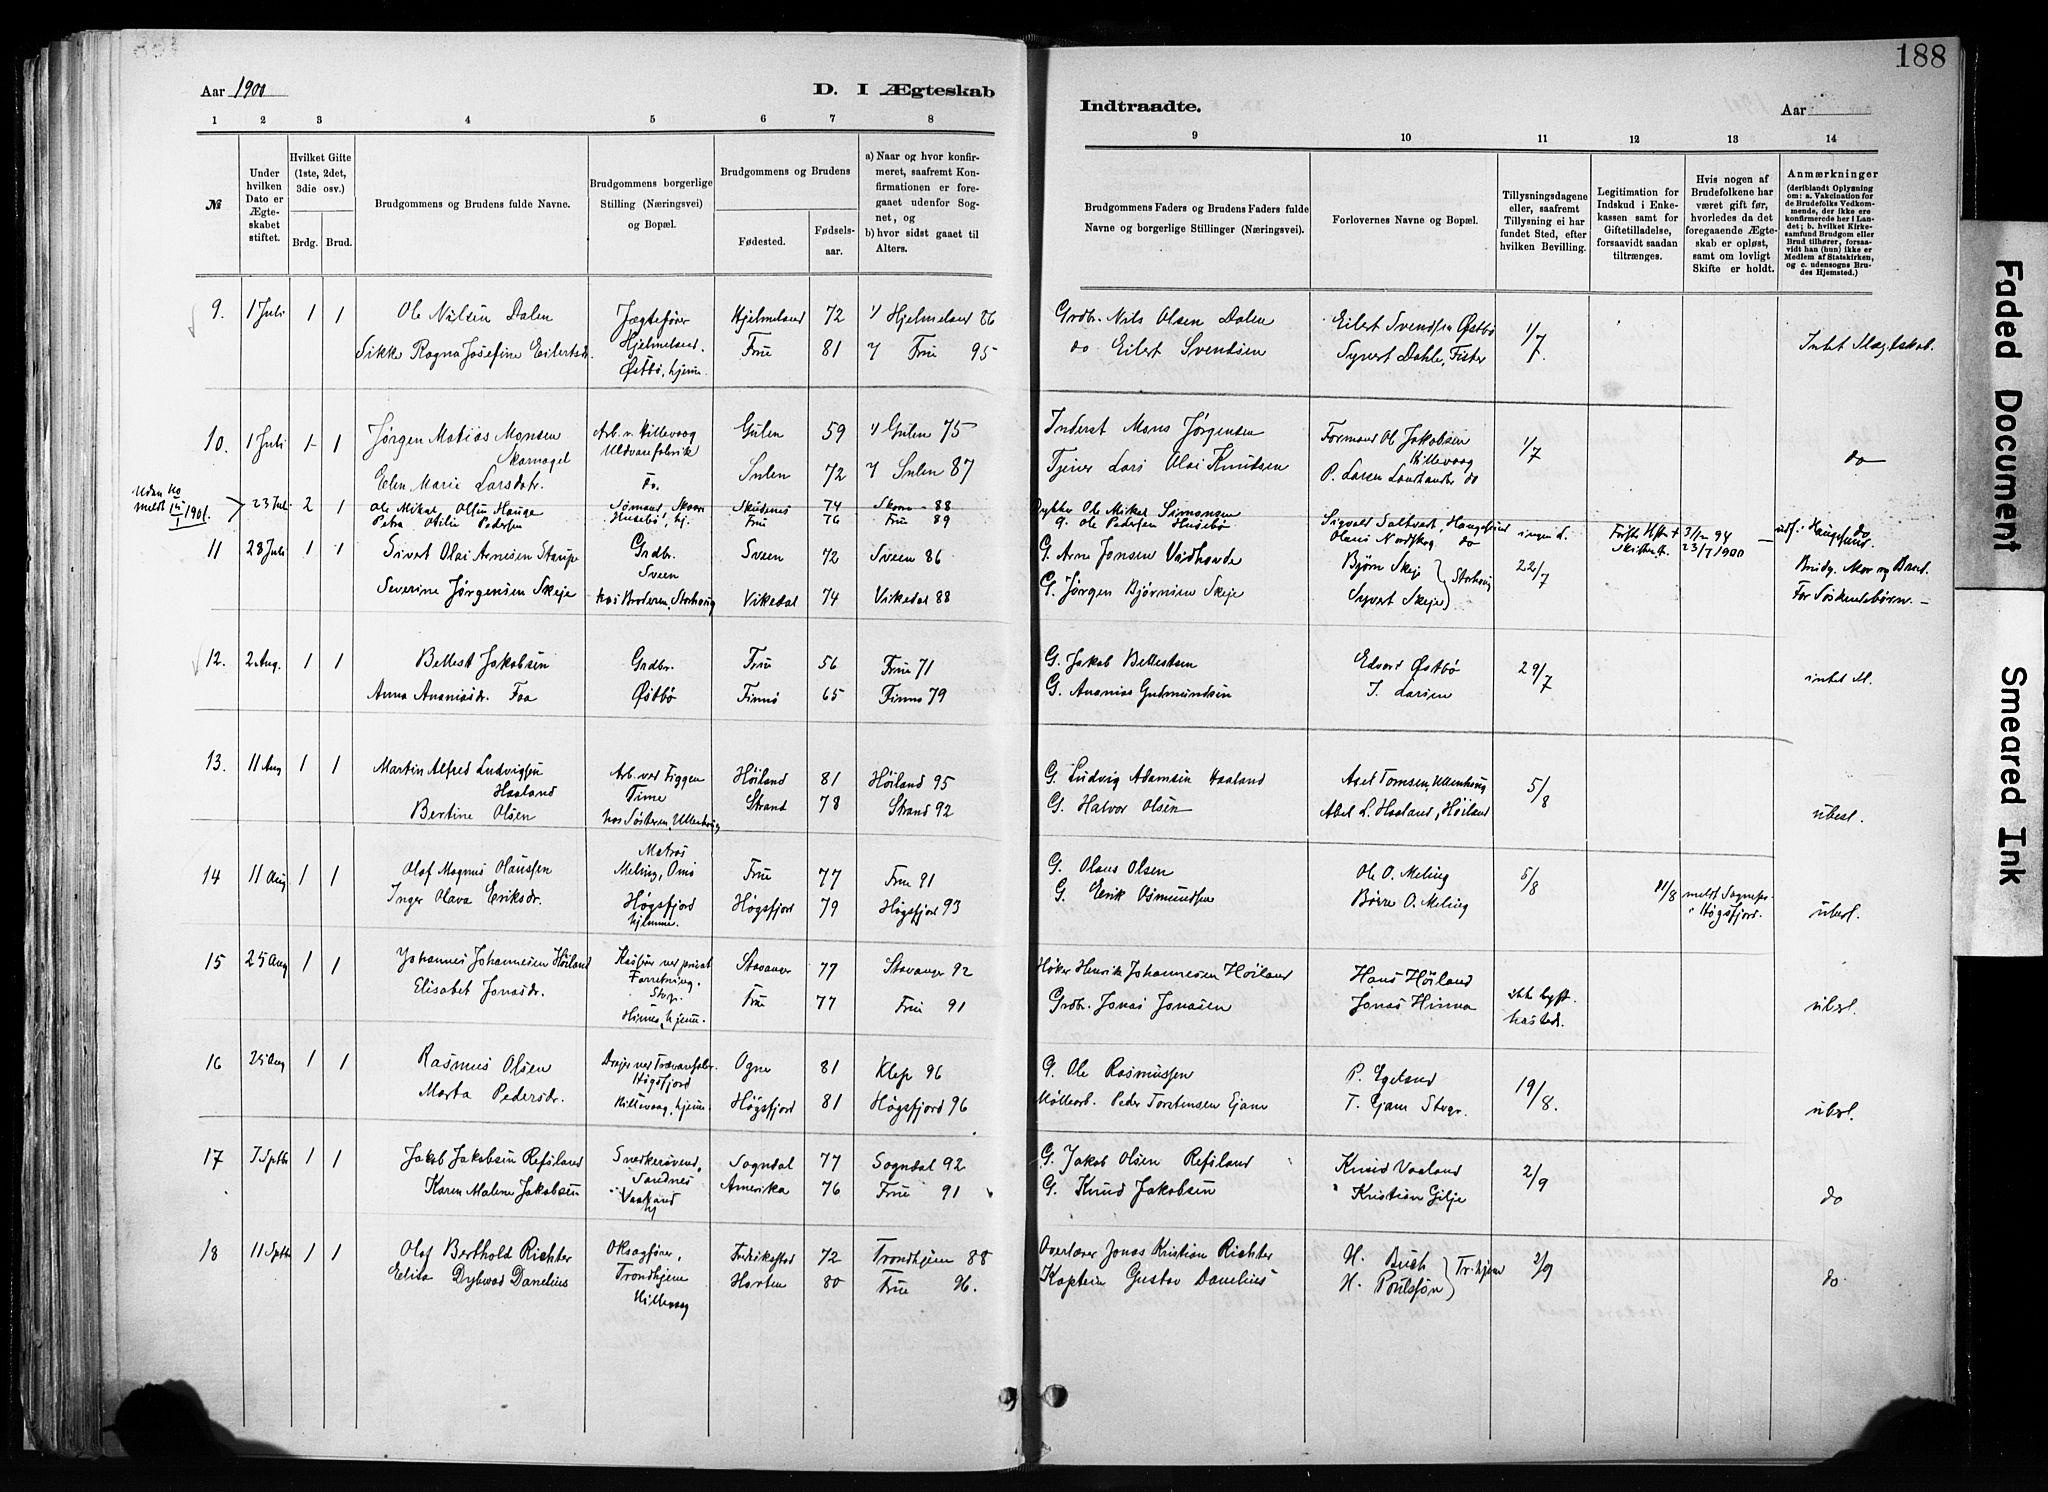 188
Aar 1900
D. I Ægteskab
Indtraadte.
Aar
1 2 3 4 5 6 7 8
9 10 11 12 13 14
№
Under hvilken Dato er Ægteskabet stiftet.
Hvilket Gifte (1ste, 2det, 3die osv.)
Brdg. Brud.
Brudgommens og Brudens fulde Navne.
Brudgommens borgerlige Stilling (Næringsvei) og Bopæl.
Brudgommens og Brudens
Fødested.
Fødselsaar.
a) Naar og hvor konfirmeret, saafremt Konfirmationen er foregaaet udenfor Sognet, og
b) hvor sidst gaaet til Alters.
Brudgommens Faders og Brudens Faders fulde Navne og borgerlige Stillinger (Næringsvei).
Forlovernes Navne og Bopæl.
Tillysningsdagene eller, saafremt Tillysning ei har fundet Sted, efter hvilken Bevilling.
Legitimation for Indskud i Enkekassen samt for Giftetilladelse, forsaavidt saadan tiltrænges.
Hvis nogen af Brudefolkene har været gift før, hvorledes da det foregaaende Ægteskab er opløst, samt om lovligt Skifte er holdt.
Anmærkninger
(deriblandt Oplysning om: a. Vakcination for de Brudefolks Vedkommende, der ikke ere konfirmerede her i Landet; b. hvilket Kirkesamfund Brudgom eller Brud tilhører, forsaavidt han (hun) ikke er Medlem af Statskirken, og c. udensogns Brudes Hjemsted.)
9. 1 Juli 1 1 Ole Nilsen Dalen Jægtefører Hjelmeland 72 Hjelmeland 86 Grdbr. Nils Olsen Dalen Eilert Svendsen Østbø 1/7
Sikke Ragna Josefine Eilertsdr. Hjelmeland. Frue 81 Frue 95 do Eilert Svendsen Syvert Dahle, Fister Intet Slægtskab.
Østbø, hjem.
10. 1 Juli 1 1 Jørgen Matias Monsen Arb. v. Hillevaag Gulen 59 Gulen 75 Inderst Mons Jørgensen Formand Ol. Jakobsen 1/7
Uldvarefabrik Hillevaag
Elen Marie Larsdatr. Fr. Sulen 72 Sulen 87 Tjener Lars Olai Knudsen P. Larsen Landhandler do do
23 Juli 2 1 Ole Mikal Olsen Hauge Sømand, Skaare Skudenes 74 Skaare 88 Ole Mikal Simonsen Sigvald Saltvedt, Haugesund ingen
Petra Otilie Pedersen Husebø, hj. Frue 76 Frue 89 G. Ole Pedersen Husebø Olaus Nordskog do 23/7 1900 Haugesund.
11 28 Juli 1 1 Sivert Olai Arnesen Stange Grdbr. Sveen 72 Sveen 86 G. Arne Jonsen Vidhovde Bjørn Skeje 22/7 Brudg. Mor og Brud.
Sveen Storhaug
Severine Jørgensen Skeje hos Broderen, Storhaug Vikedal 74 Vikedal 88 G. Jørgen Bjørnsen Skeje Syvert Skeje Far Søskendebørn.
12. 2 Aug. 1 1 Bellest Jakobsen Grdbr. Frue 56 Frue 71 G. Jakob Bellestsen Edvard Østbø 29/7
Anna Ananiasdr. Foa Østbø Finnø 65 Finnø 79 G. Ananias Gudmundsen I. Larsen intet M.
13. 11 Aug 1 1 Martin Alfred Ludvigsen Arb. ved Figgen Høiland 81 Høiland 95 G. Ludvig Adamsen Haaland Axel Tomsen, Ullenhaug 5/8
Haaland Time
Bertine Olsen hos Søsteren, Ullenhaug Strand 78 Strand 92 G. Halvor Olsen Abel L. Haaland, Høiland ubesl.
14 11 Aug 1 1 Olaf Magnus Olaussen Matros Frue 77 Frue 91 G. Olaus Olsen Ole O. Meling 5/8
Meling, Omø
Inger Olava Eriksdr. Høgsfjord Høgsfjord 79 Høgsfjord 93 G. Erik Osmundsen Børre O. Meling 11/8 meldt Sognepr. i Høgsfjord. ubesl.
hjemme.
15 25 Aug 1 1 Johannes Johannesen Høiland Kasserer ved privat Stavanger 77 Stavanger 92 Høker Henrik Johannesen Høiland Hans Høiland ikke lyst.
Forretning.
Elisabet Jonasdr. Stvgr. Frue 77 Frue 91 Grdbr. Jonas Jonasen Jonas Hinna ubesl.
Hinna, hjem.
16 25 Aug 1 1 Rasmus Olsen Drejer ved Trævarefabr. Ogne 81 Klep 96 G. Ole Rasmussen P. Egeland 19/8.
Høgsfjord
Marta Pedersdr. Hillevaag, hjem. Høgsfjord 81 Høgsfjord 96 Møllearb. Peder Torstensen Ejane T. Ejane Stvgr. ubesl.
17 7 Septbr 1 1 Jakob Jakobsen Refsland Snedkersvend, Sogndal 77 Sogndal 92 G. Jakob Olsen Refsland Knud Vaaland 2/9
Sandnes
Karen Malene Jakobsen Vaaland Amerika 76 Frue 91 G. Knud Jakobsen Kristian Gilje do
hj
18 11 Septbr 1 1 Olaf Berthold Richter Sagfører, Fredrikstad 72 Trondhjem 88 Overlærer Jonas Kristian Richter H. Buch Tr.hjem 2/9
Elisa Dybwad Danelius Trondhjem Horten 80 Frue 96. Kaptein Gustav Danelius H. Poulsson do.
Hillevaag
Faded Document
Smeared Ink